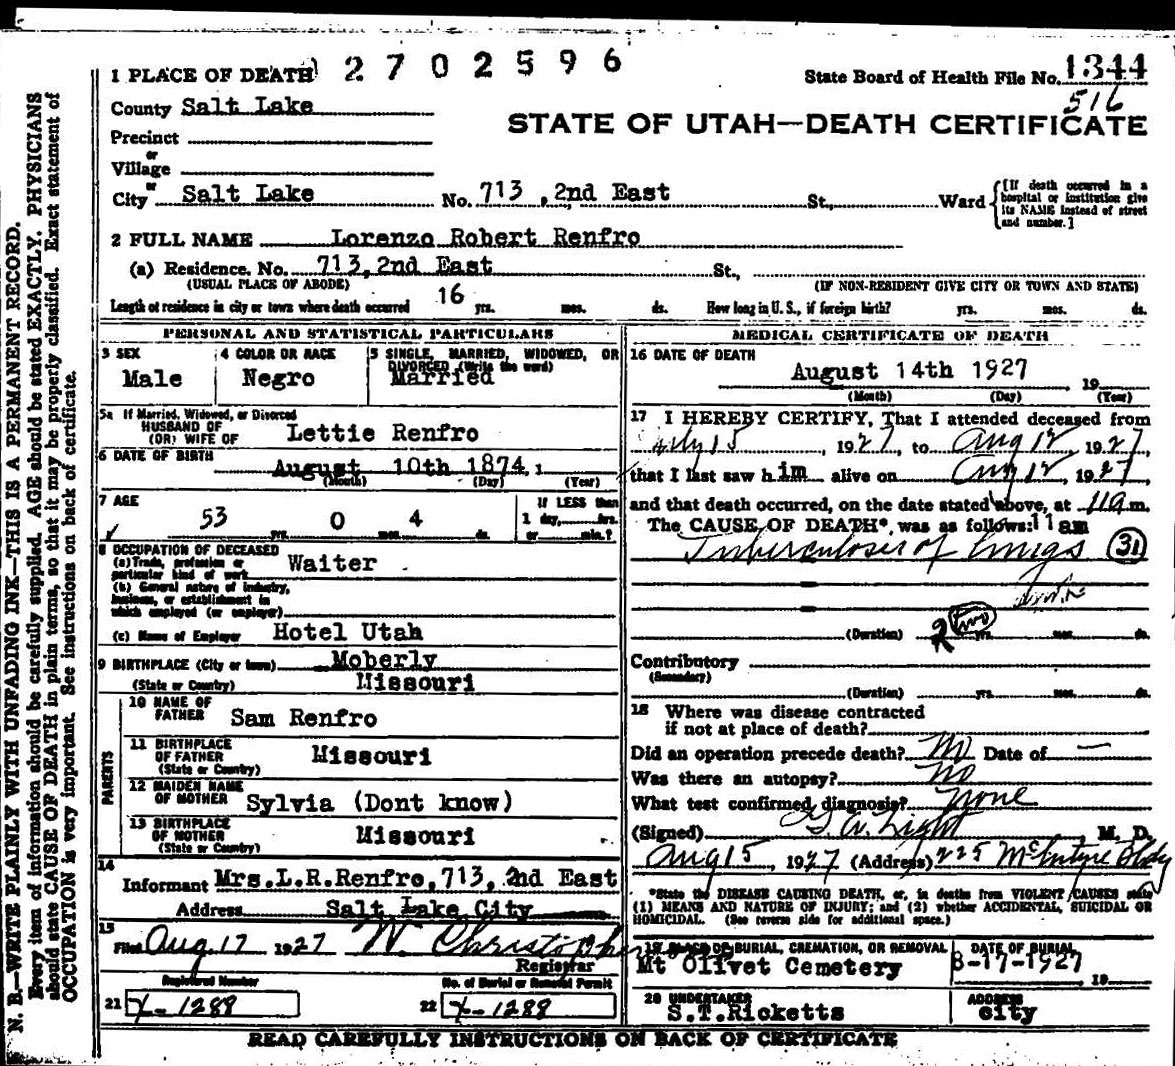 1 PLACE OF DEATH 2702596
State Board of Health File No. 1344
516
County Salt Lake
STATE OF UTAH—DEATH CERTIFICATE
Precinct
or
Village
or
City Salt Lake No. 713, 2nd East St., Ward
[If death occurred in a hospital or institution give its NAME instead of street and number.]
2 FULL NAME Lorenzo Robert Renfro
(a) Residence. No. 713, 2nd East St.,
(USUAL PLACE OF ABODE) (IF NON-RESIDENT GIVE CITY OR TOWN AND STATE)
Length of residence in city or town where death occurred 16 yrs. mos. ds. How long in U. S., if foreign birth? yrs. mos. ds.
PERSONAL AND STATISTICAL PARTICULARS
3 SEX
Male
4 COLOR OR RACE
Negro
5 SINGLE, MARRIED, WIDOWED, OR
DIVORCED (Write the word)
Married
5a If Married, Widowed, or Divorced
HUSBAND OF
(OR) WIFE OF Lettie Renfro
6 DATE OF BIRTH
August 10th 1874, 1
(Month) (Day) (Year)
7 AGE
53 yrs. 0 mos. 4 ds.
If LESS than
1 day, hrs.
or min.?
8 OCCUPATION OF DECEASED
(a) Trade, profession or
particular kind of work Waiter
(b) General nature of industry,
business, or establishment in
which employed (or employer)
(c) Name of Employer Hotel Utah
9 BIRTHPLACE (City or town) Moberly
(State or Country) Missouri
PARENTS
10 NAME OF
FATHER Sam Renfro
11 BIRTHPLACE
OF FATHER
(State or Country) Missouri
12 MAIDEN NAME
OF MOTHER Sylvia (Dont know)
13 BIRTHPLACE
OF MOTHER
(State or Country) Missouri
14
Informant Mrs.L.R.Renfro, 713, 2nd East
Address Salt Lake City
15
Filed Aug 17 1927 W Christoph
Registrar
Registered Number
21 X-1288
No. of Burial or Removal Permit
22 X-1288
MEDICAL CERTIFICATE OF DEATH
16 DATE OF DEATH
August 14th 1927 19
(Month) (Day) (Year)
17 I HEREBY CERTIFY, That I attended deceased from
July 15, 1927, to Aug 12, 1927,
that I last saw him alive on Aug 12, 1927,
and that death occurred, on the date stated above, at 11a m.
The CAUSE OF DEATH*, was as follows: 11am
Tuberculosis of lungs 31
(Duration) 2 two yrs. mos. ds.
Contributory
(Secondary)
(Duration) yrs. mos. ds.
18 Where was disease contracted
if not at place of death?
Did an operation precede death? No Date of —
Was there an autopsy? no
What test confirmed diagnosis? none
(Signed) G. A. Light, M. D.
Aug 15, 1927 (Address) 225 McIntyre Bldg
*State the DISEASE CAUSING DEATH, or, in deaths from VIOLENT CAUSES state
(1) MEANS AND NATURE OF INJURY; and (2) whether ACCIDENTAL, SUICIDAL OR
HOMICIDAL. (See reverse side for additional space.)
19 PLACE OF BURIAL, CREMATION, OR REMOVAL
Mt Olivet Cemetery
DATE OF BURIAL
8-17-1927
19
20 UNDERTAKER
S.T.Ricketts
ADDRESS
city
READ CAREFULLY INSTRUCTIONS ON BACK OF CERTIFICATE
N. B.—WRITE PLAINLY WITH UNFADING INK—THIS IS A PERMANENT RECORD.
Every item of information should be carefully supplied. AGE should be stated EXACTLY. PHYSICIANS
should state CAUSE OF DEATH in plain terms, so that it may be properly classified. Exact statement of
OCCUPATION is very important. See instructions on back of certificate.